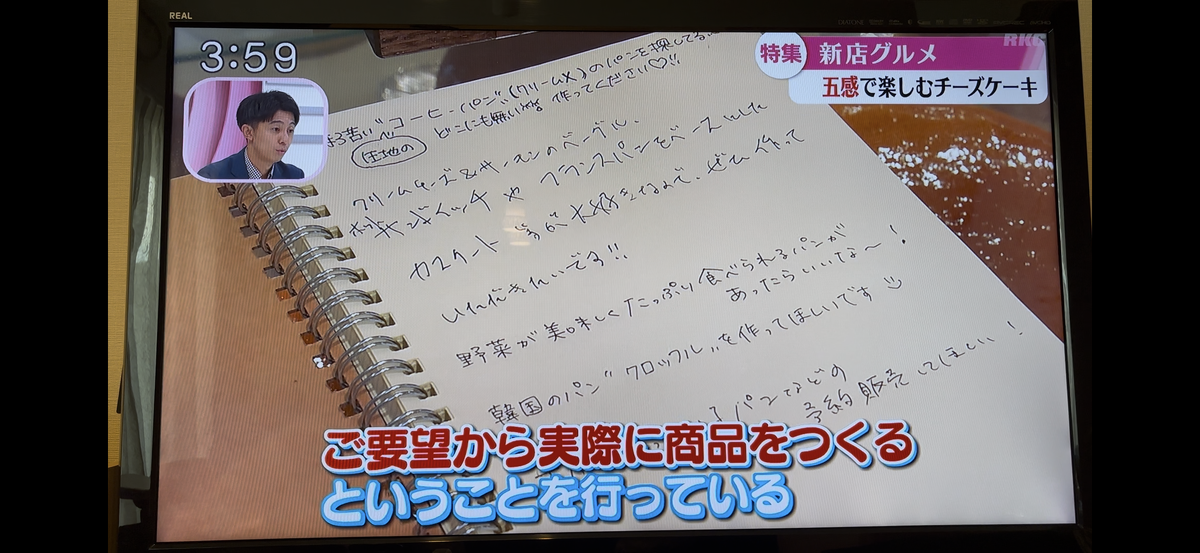 REAL
3:59
RKC
特集 新店グルメ
五感で楽しむチーズケーキ
苦い"コーヒーパン"(クリーム×)のパンを探してる
生地の
どこにも無い 作ってください♡!!
クリームチーズ&サーモンのベーグル、
サンドイッチや フランスパンをベースにした
カスタード 大好きなので、ぜひ作って
いただきたいです!!
野菜が美味しくたっぷり食べられるパンが
あったらいいな〜!
韓国のパン"クロッフル"を作ってほしいです
パンなどの
予約販売してほしい!
ご要望から実際に商品をつくる
ということを行っている